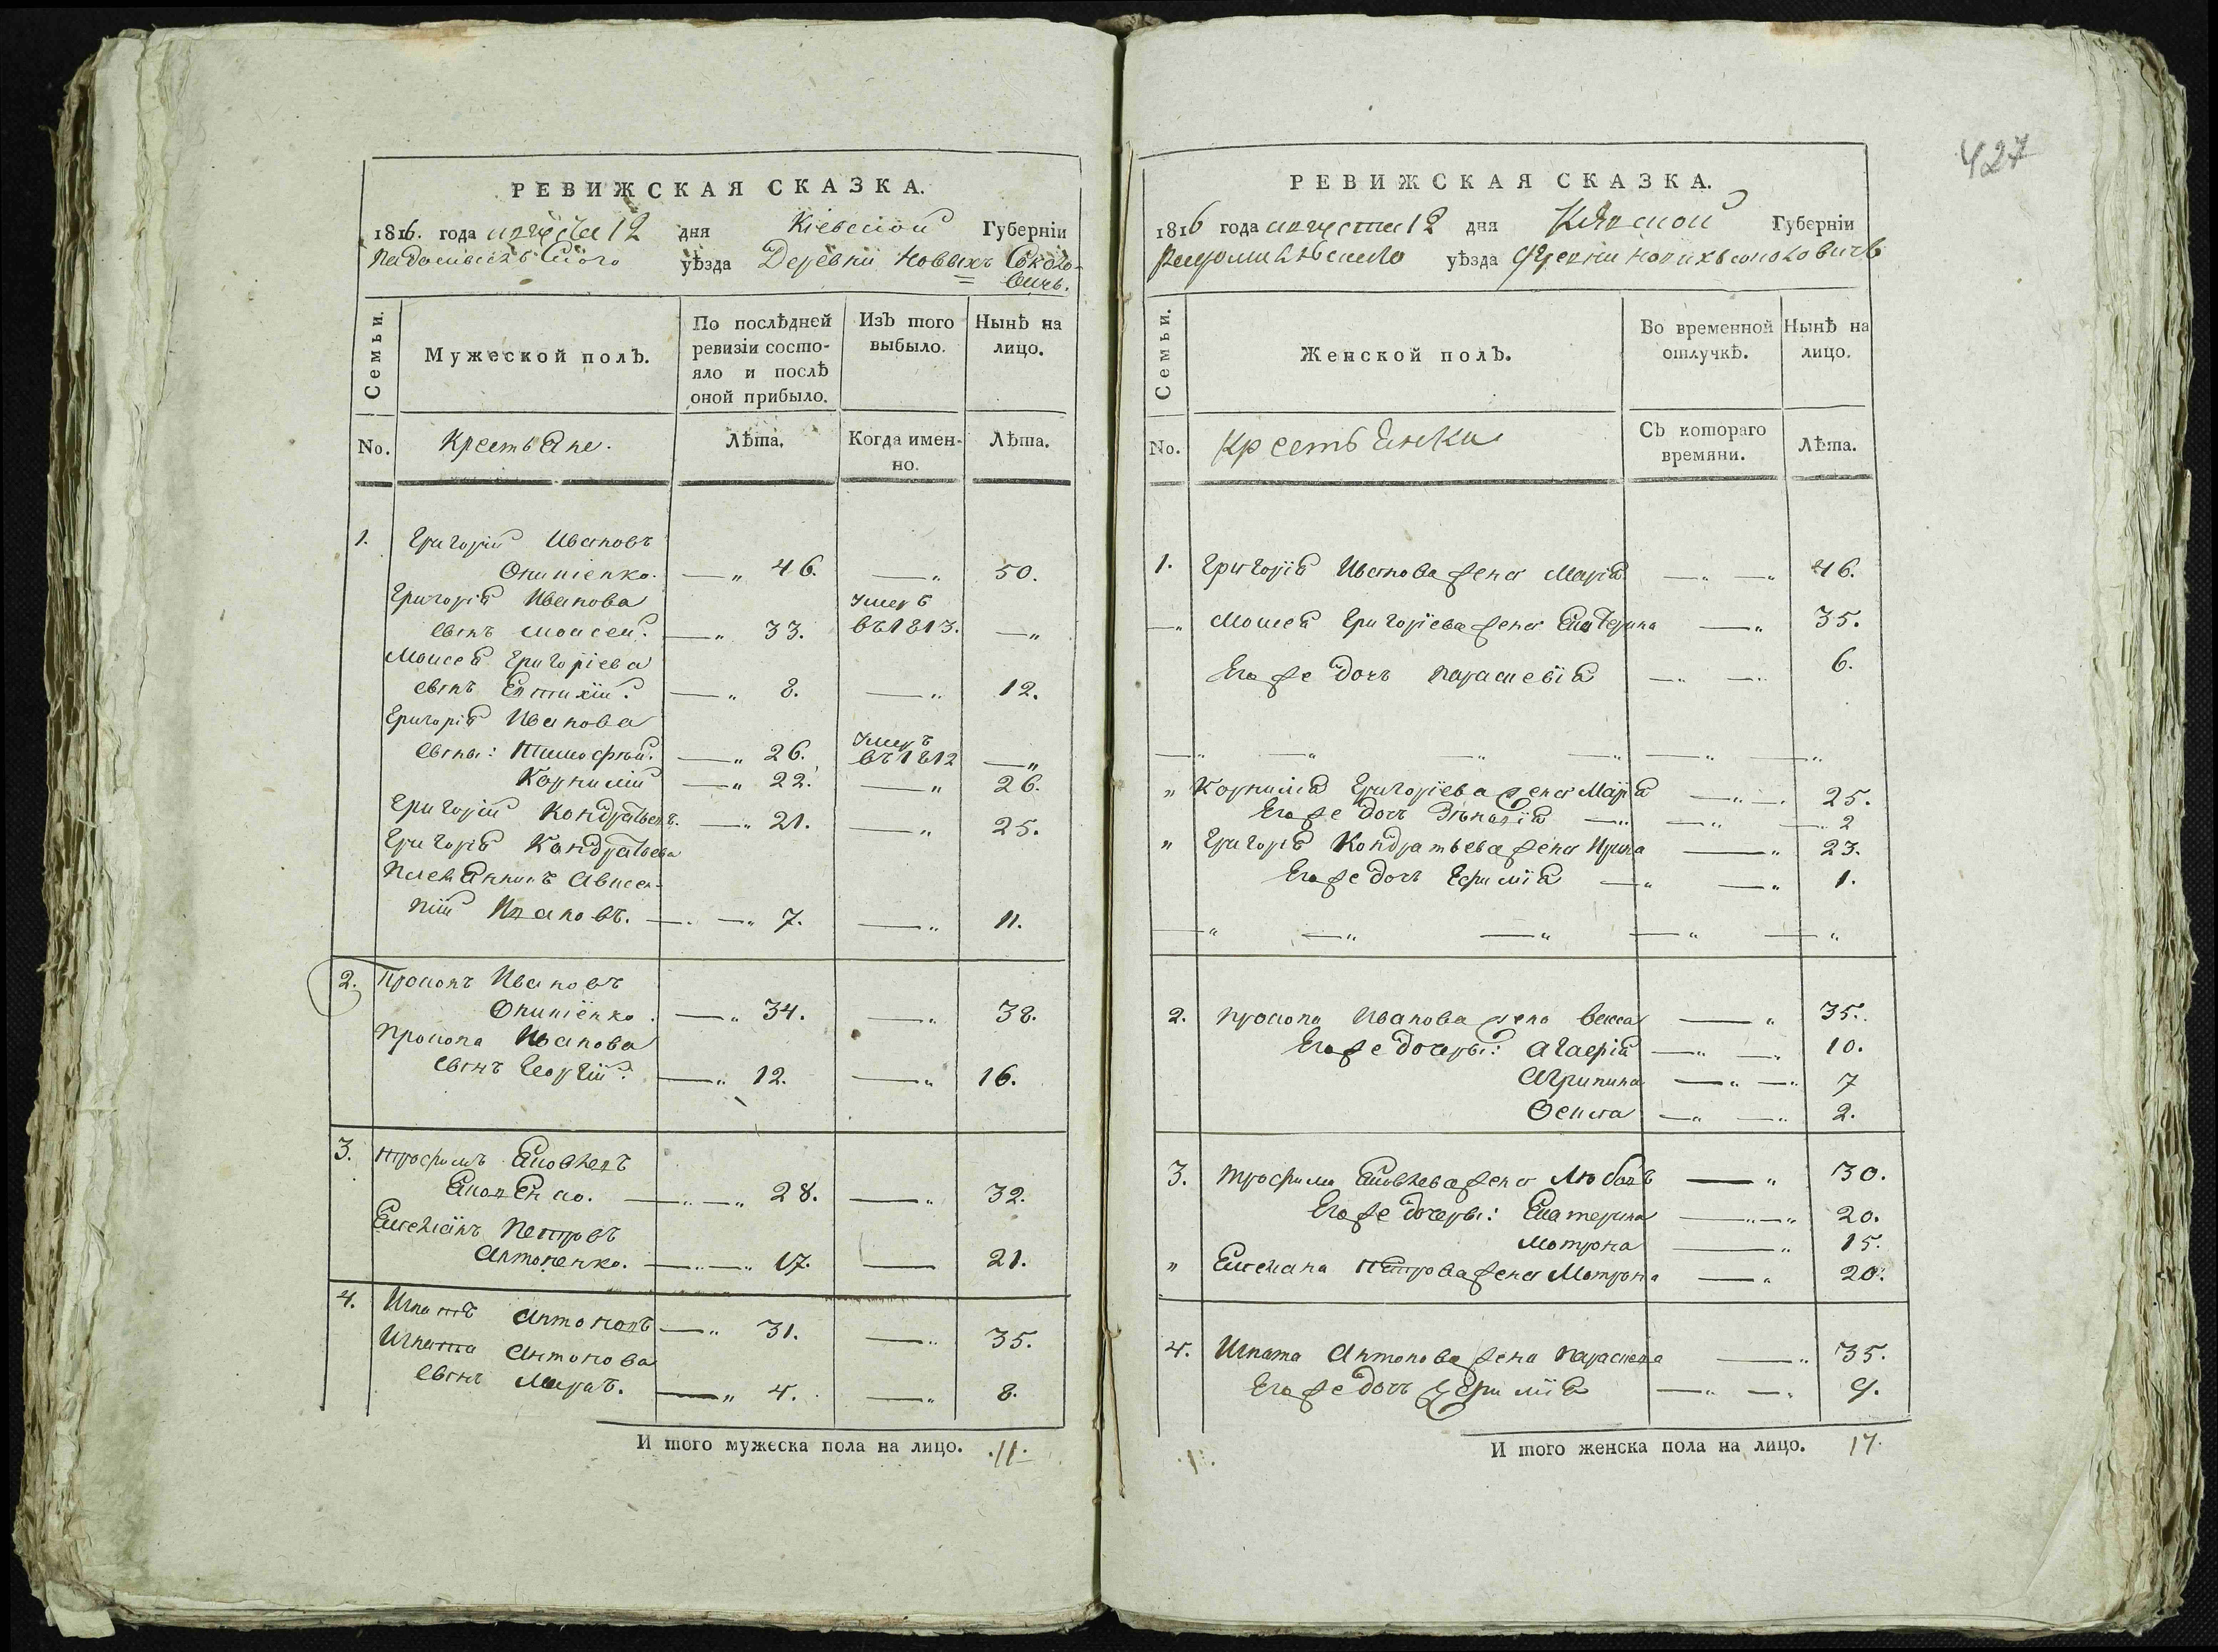 РЕВИЖСКАЯ СКАЗКА.
1816. года августа 12 дня Кіевской Губерніи
Радомысльского уѣзда Деревни Новыхъ Соколо-
вичъ.
Семьи.
Мужеской полъ.
По послѣдней
ревизіи состо-
яло и послѣ
оной прибыло.
Изъ того
выбыло.
Нынѣ на
лицо.
No. Крестьяне. Лѣта. Когда имен-
но. Лѣта.
1. Григорій Ивановъ
Онипіенко. — „ 46. — „ 50.
Григорія Иванова умеръ
сынъ Моисей. — „ 33. въ 1813. — „
Моисея Григоріева
сынъ Евтихій. — „ 8. — „ 12.
Григорія Иванова
сыны: Тимофей. — „ 26. умеръ въ 1812 — „
Корнилій — „ 22. — „ 26.
Григорій Кондратьевъ. — „ 21. — „ 25.
Григорія Кондратьева
Племянникъ Авксен-
тий Ивановъ. — „ 7. — „ 11.
2. Прокопъ Ивановъ
Онипіенко. — „ 34. — „ 38.
Прокопа Иванова
сынъ Георгій. — „ 12. — „ 16.
3. Трофимъ Яковлевъ
Яковенко. — „ — „ 28. — „ 32.
Емельянъ Петровъ
Антоненко. — „ — „ 17. — 21.
4. Игнатъ Антоновъ — „ 31. — „ 35.
Игната Антонова
сынъ Маркъ. — „ 4. — „ 8.
И того мужеска пола на лицо. 11.
427
РЕВИЖСКАЯ СКАЗКА.
1816 года августа 12 дня Кіевской Губерніи
Радомысльского уѣзда Деревни Новыхъ Соколовичъ
Семьи.
Женской полъ.
Во временной
отлучкѣ.
Нынѣ на
лицо.
No. Крестьянки Съ котораго
времяни. Лѣта.
1. Григорія Иванова жена Марія — „ — „ 46.
— „ Моисея Григоріева жена Екатерина — „ 35.
Его же дочь Параскевія — „ — „ 6.
— „ — „ — „ — „ — „ — „
„ Корнилія Григоріева жена Марія — „ — „ 25.
Его же дочь — „ — „ — „ 2
„ Григорія Кондратьева жена Ирина — „ 23.
Его же дочь Ефимія — „ — „ 1.
— „ — „ — „ — „ — „
2. Прокопа Иванова жена Васса — „ 35.
Его же дочери: Агафія — „ — „ 10.
Агрипина — „ — „ 7
Фекла — „ — „ 2.
3. Трофима Яковлева жена Любовъ — „ 30.
Его же дочери: Екатерина — „ — „ 20.
Мотрона — „ 15.
„ Емельяна Петрова жена Мотрона — „ 20.
4. Игната Антонова жена Параскева — „ 35.
Его же дочь Ефимія — „ — „ 9.
И того женска пола на лицо. 17.